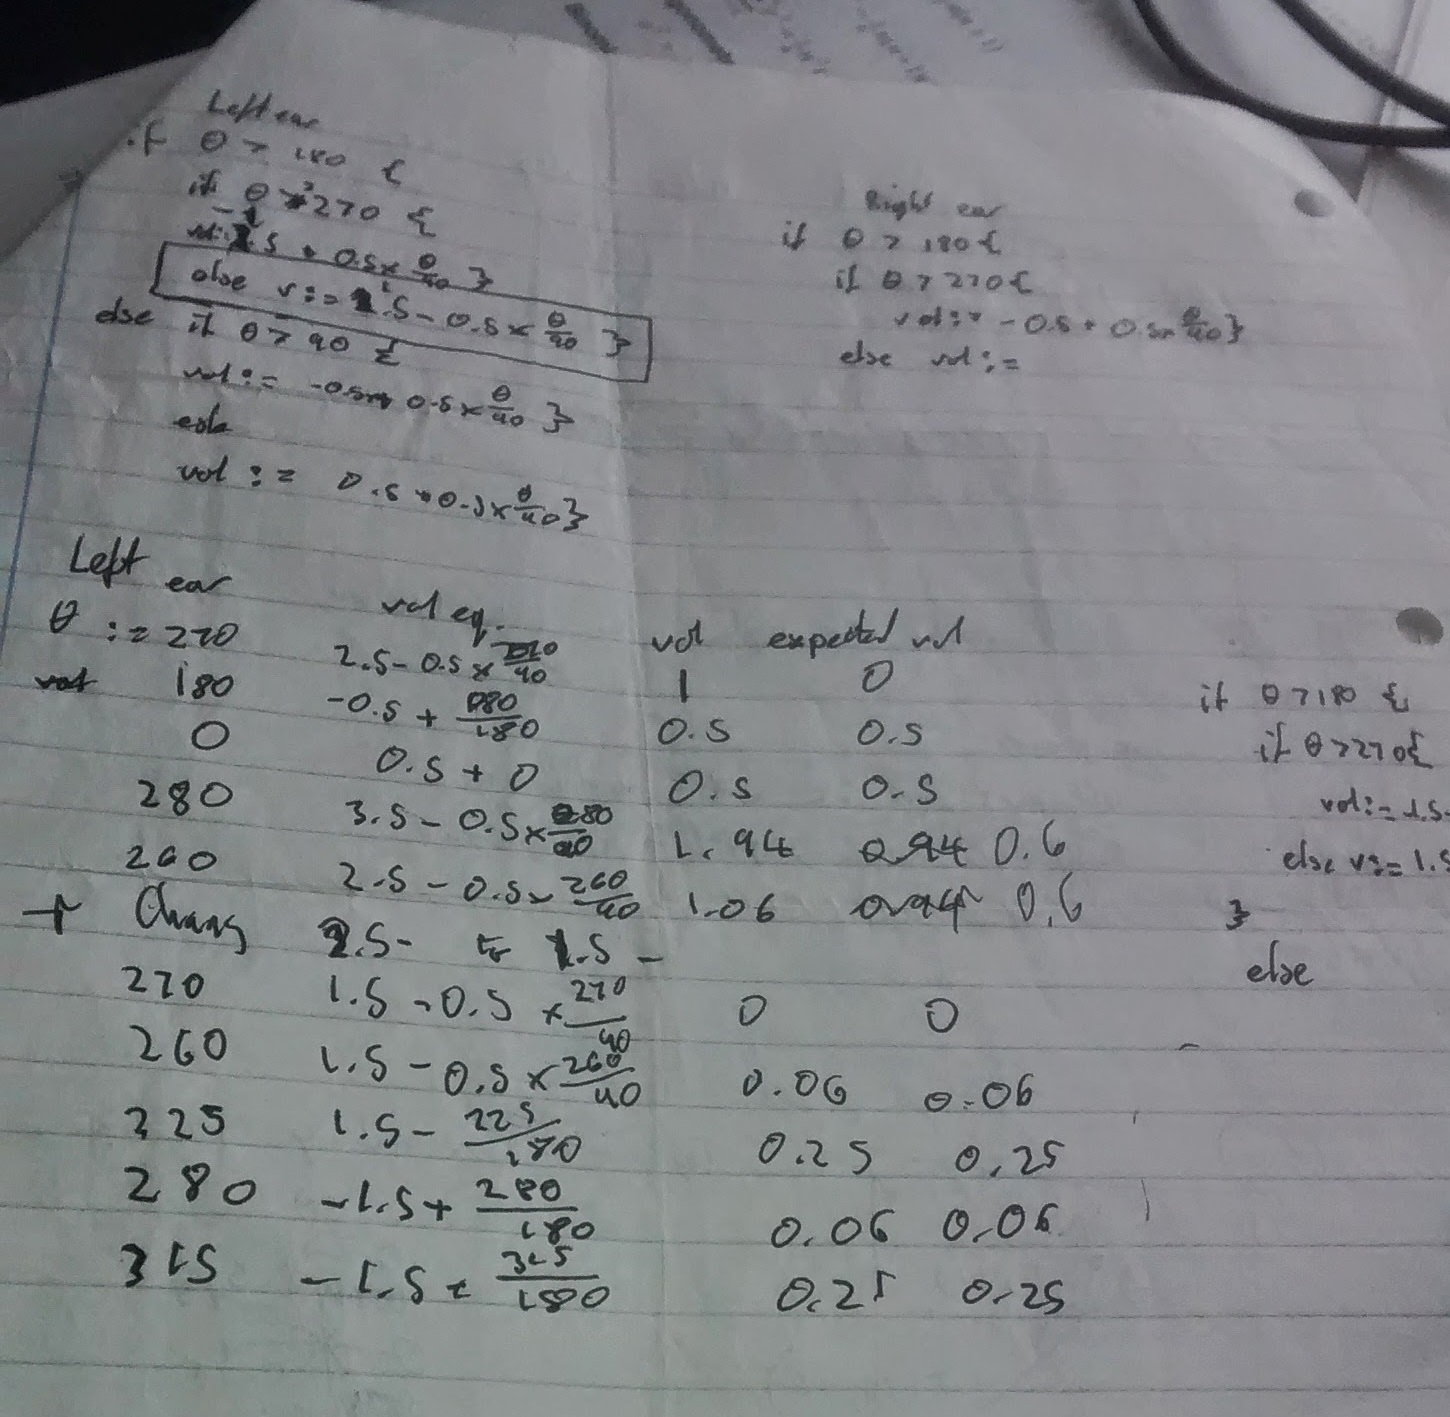 Left ear
if θ > 180 {
if θ > 270 {
vol: -1.5 + 0.5 × θ/90 }
else v := 1.5 - 0.5 × θ/90 }
else if θ > 90 {
vol := -0.5 + 0.5 × θ/90 }
else
vol := 0.5 + 0.5 × θ/90 }
Right ear
if θ > 180 {
if θ > 270 {
vol := -0.5 + 0.5 × θ/90 }
else vol :=
Left ear
vol eq. vol expected vol
θ := 270 2.5 - 0.5 × 270/90 1 0
180 -0.5 + 180/180 0.5 0.5
0 0.5 + 0 0.5 0.5
280 3.5 - 0.5 × 280/90 1.94 0.6
260 2.5 - 0.5 × 260/90 1.06 0.6
Chang 2.5 - to 1.5 -
270 1.5 - 0.5 × 270/90 0 0
260 1.5 - 0.5 × 260/90 0.06 0.06
225 1.5 - 225/180 0.25 0.25
280 -1.5 + 280/180 0.06 0.06
315 -1.5 + 315/180 0.25 0.25
if θ > 180 {
if θ > 270 {
vol := 1.5-
else v := 1.5
}
else